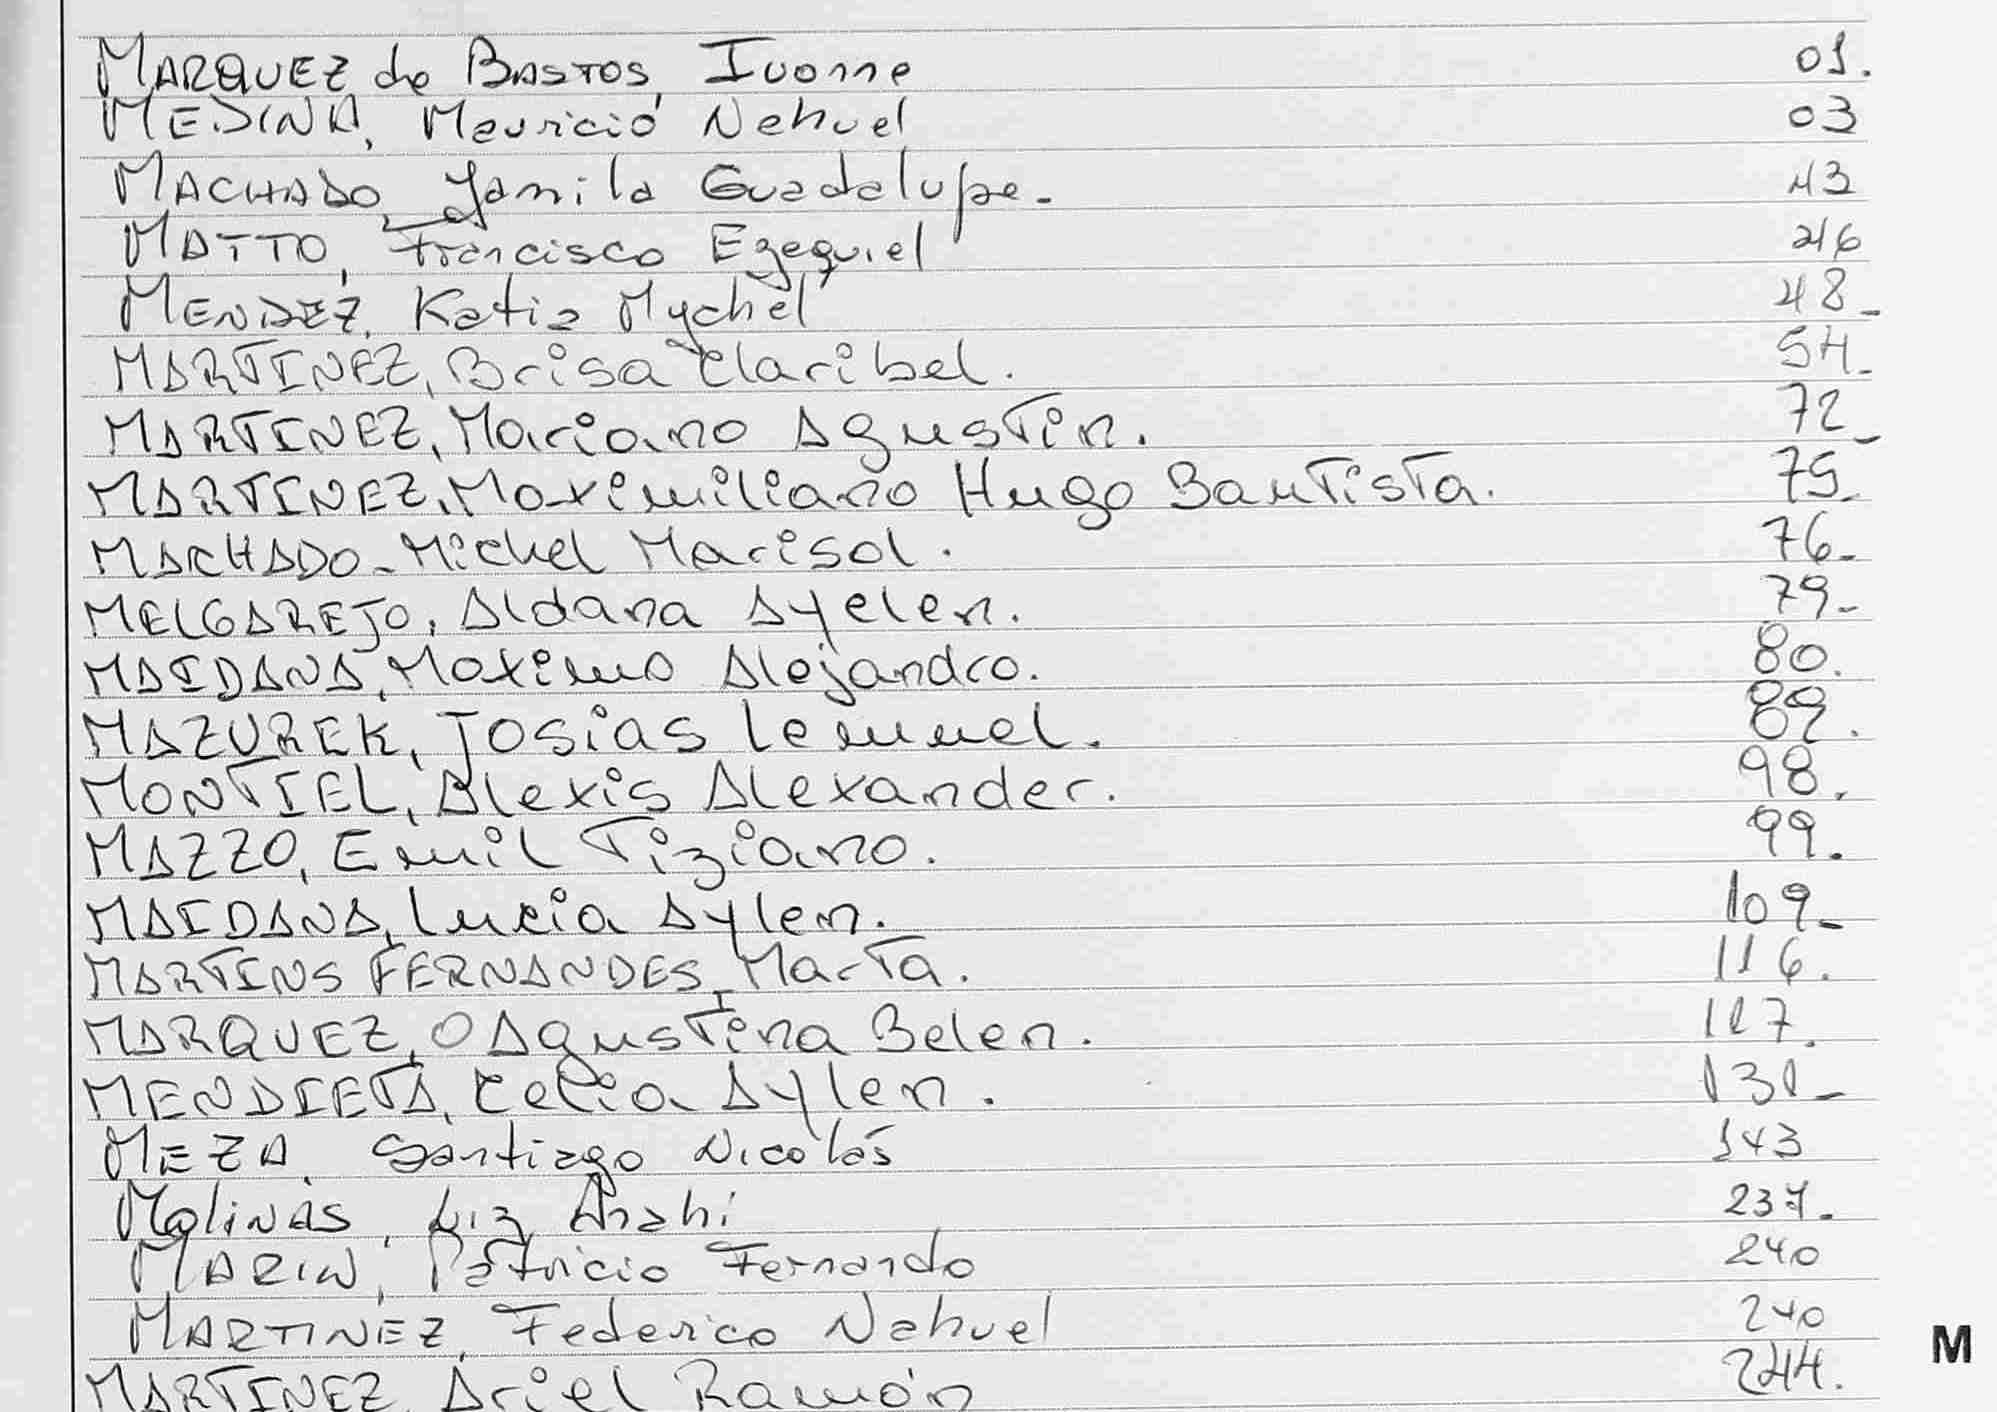 MARQUEZ de BASTOS, Ivonne 01.
MEDINA, Mauricio Nahuel 03
MACHADO, Yamila Guadalupe. 43
MATTO, Francisco Ezequiel 46
MENDEZ, Katia Mychel 48_
MARTINEZ, Brisa Claribel. 54_
MARTINEZ, Mariano Agustin. 72_
MARTINEZ, Maximiliano Hugo Bautista. 75_
MACHADO_ Michel Marisol. 76_
MELGAREJO, Aldana Ayelen. 79_
MAIDANA, Maximo Alejandro. 80.
MAZUREK, Josias Lemuel. 89.
MONTIEL, Alexis Alexander. 98.
MAZZO, Emil Tiziano. 99.
MAIDANA, Lucia Aylen. 109_
MARTINS FERNANDES, Marta. 116.
MARQUEZ, Agustina Belen. 117.
MENDIETA, Celia Aylen. 131_
MEZA, Santiago Nicolás 143
Molinas, Liz Anahi 237.
MARIN, Patricio Fernando 240
MARTINEZ, Federico Nahuel 240
M
MARTINEZ, Ariel Ramón 244.